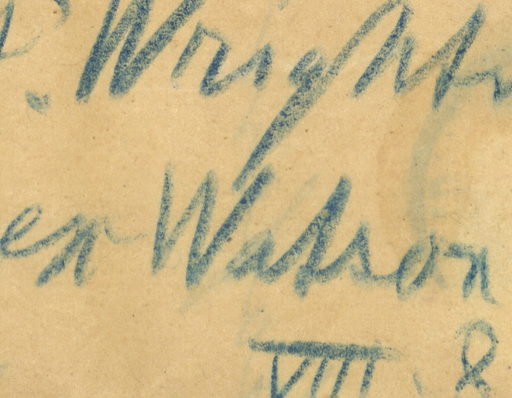 . Wright
er Watson
VIII . 8